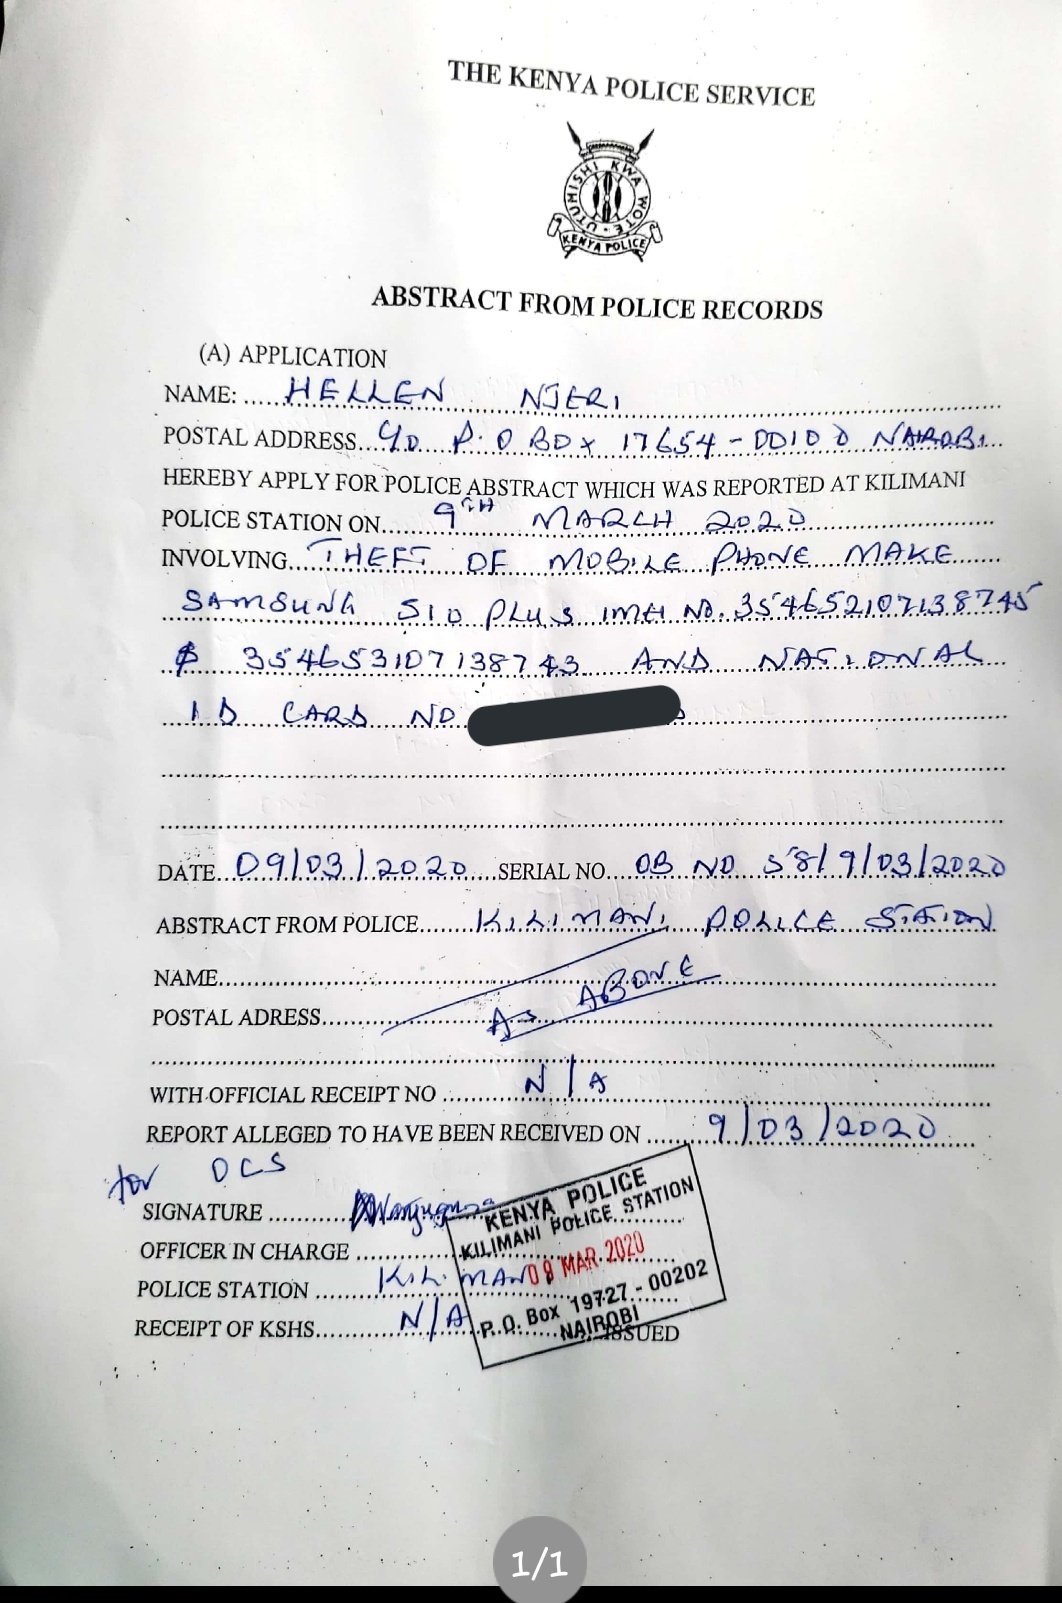 THE KENYA POLICE SERVICE
UTUMISHI KWA WOTE
KENYA POLICE
ABSTRACT FROM POLICE RECORDS
(A) APPLICATION
NAME: HELLEN NJERI
POSTAL ADDRESS C/O P.O BOX 17654-00100 NAIROBI
HEREBY APPLY FOR POLICE ABSTRACT WHICH WAS REPORTED AT KILIMANI
POLICE STATION ON 9TH MARCH 2020
INVOLVING THEFT OF MOBILE PHONE MAKE
SAMSUNG S10 PLUS IMEI NO. 354652107138745
& 354653107138743 AND NATIONAL
ID CARD NO
DATE 09/03/2020 SERIAL NO. OB NO 58/9/03/2020
ABSTRACT FROM POLICE KILIMANI POLICE STATION
NAME
POSTAL ADRESS AS ABOVE
WITH OFFICIAL RECEIPT NO N/A
REPORT ALLEGED TO HAVE BEEN RECEIVED ON 9/03/2020
for OCS
SIGNATURE
OFFICER IN CHARGE
POLICE STATION KILIMANI
RECEIPT OF KSHS N/A ISSUED
KENYA POLICE
KILIMANI POLICE STATION
09 MAR 2020
P.O. Box 19727 - 00202
NAIROBI
1/1